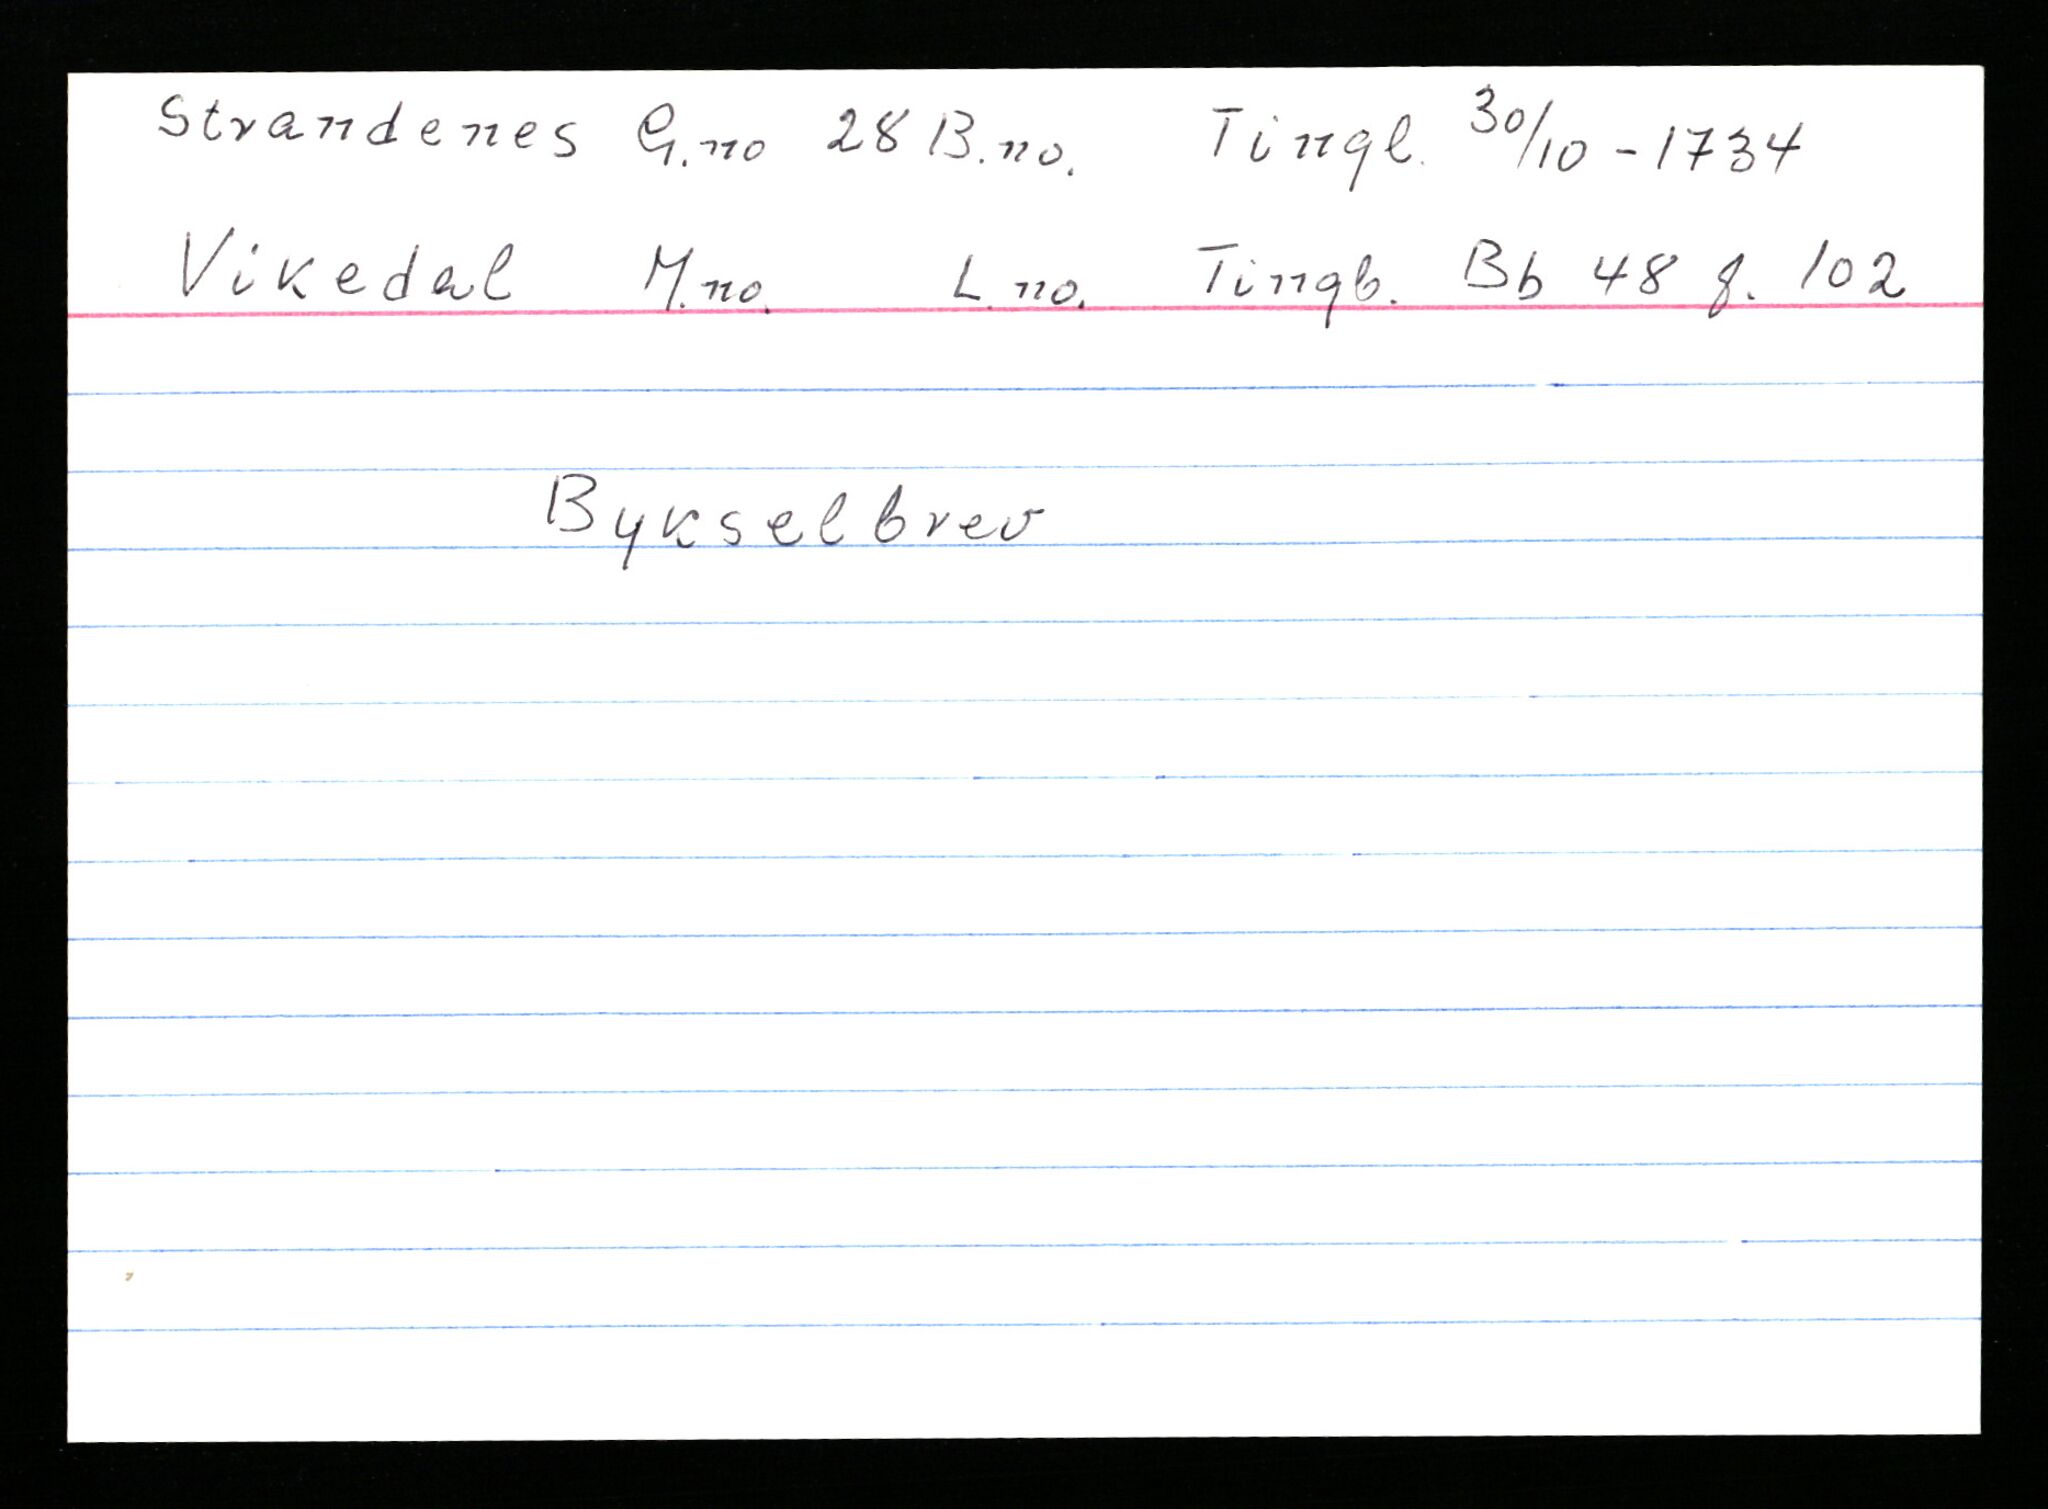 Strandenes G.no 28 B.no. Tingl. 30/10 - 1734
Vikedal M.no. L.no. Tingb. Bb 48 f. 102
Bykselbrev